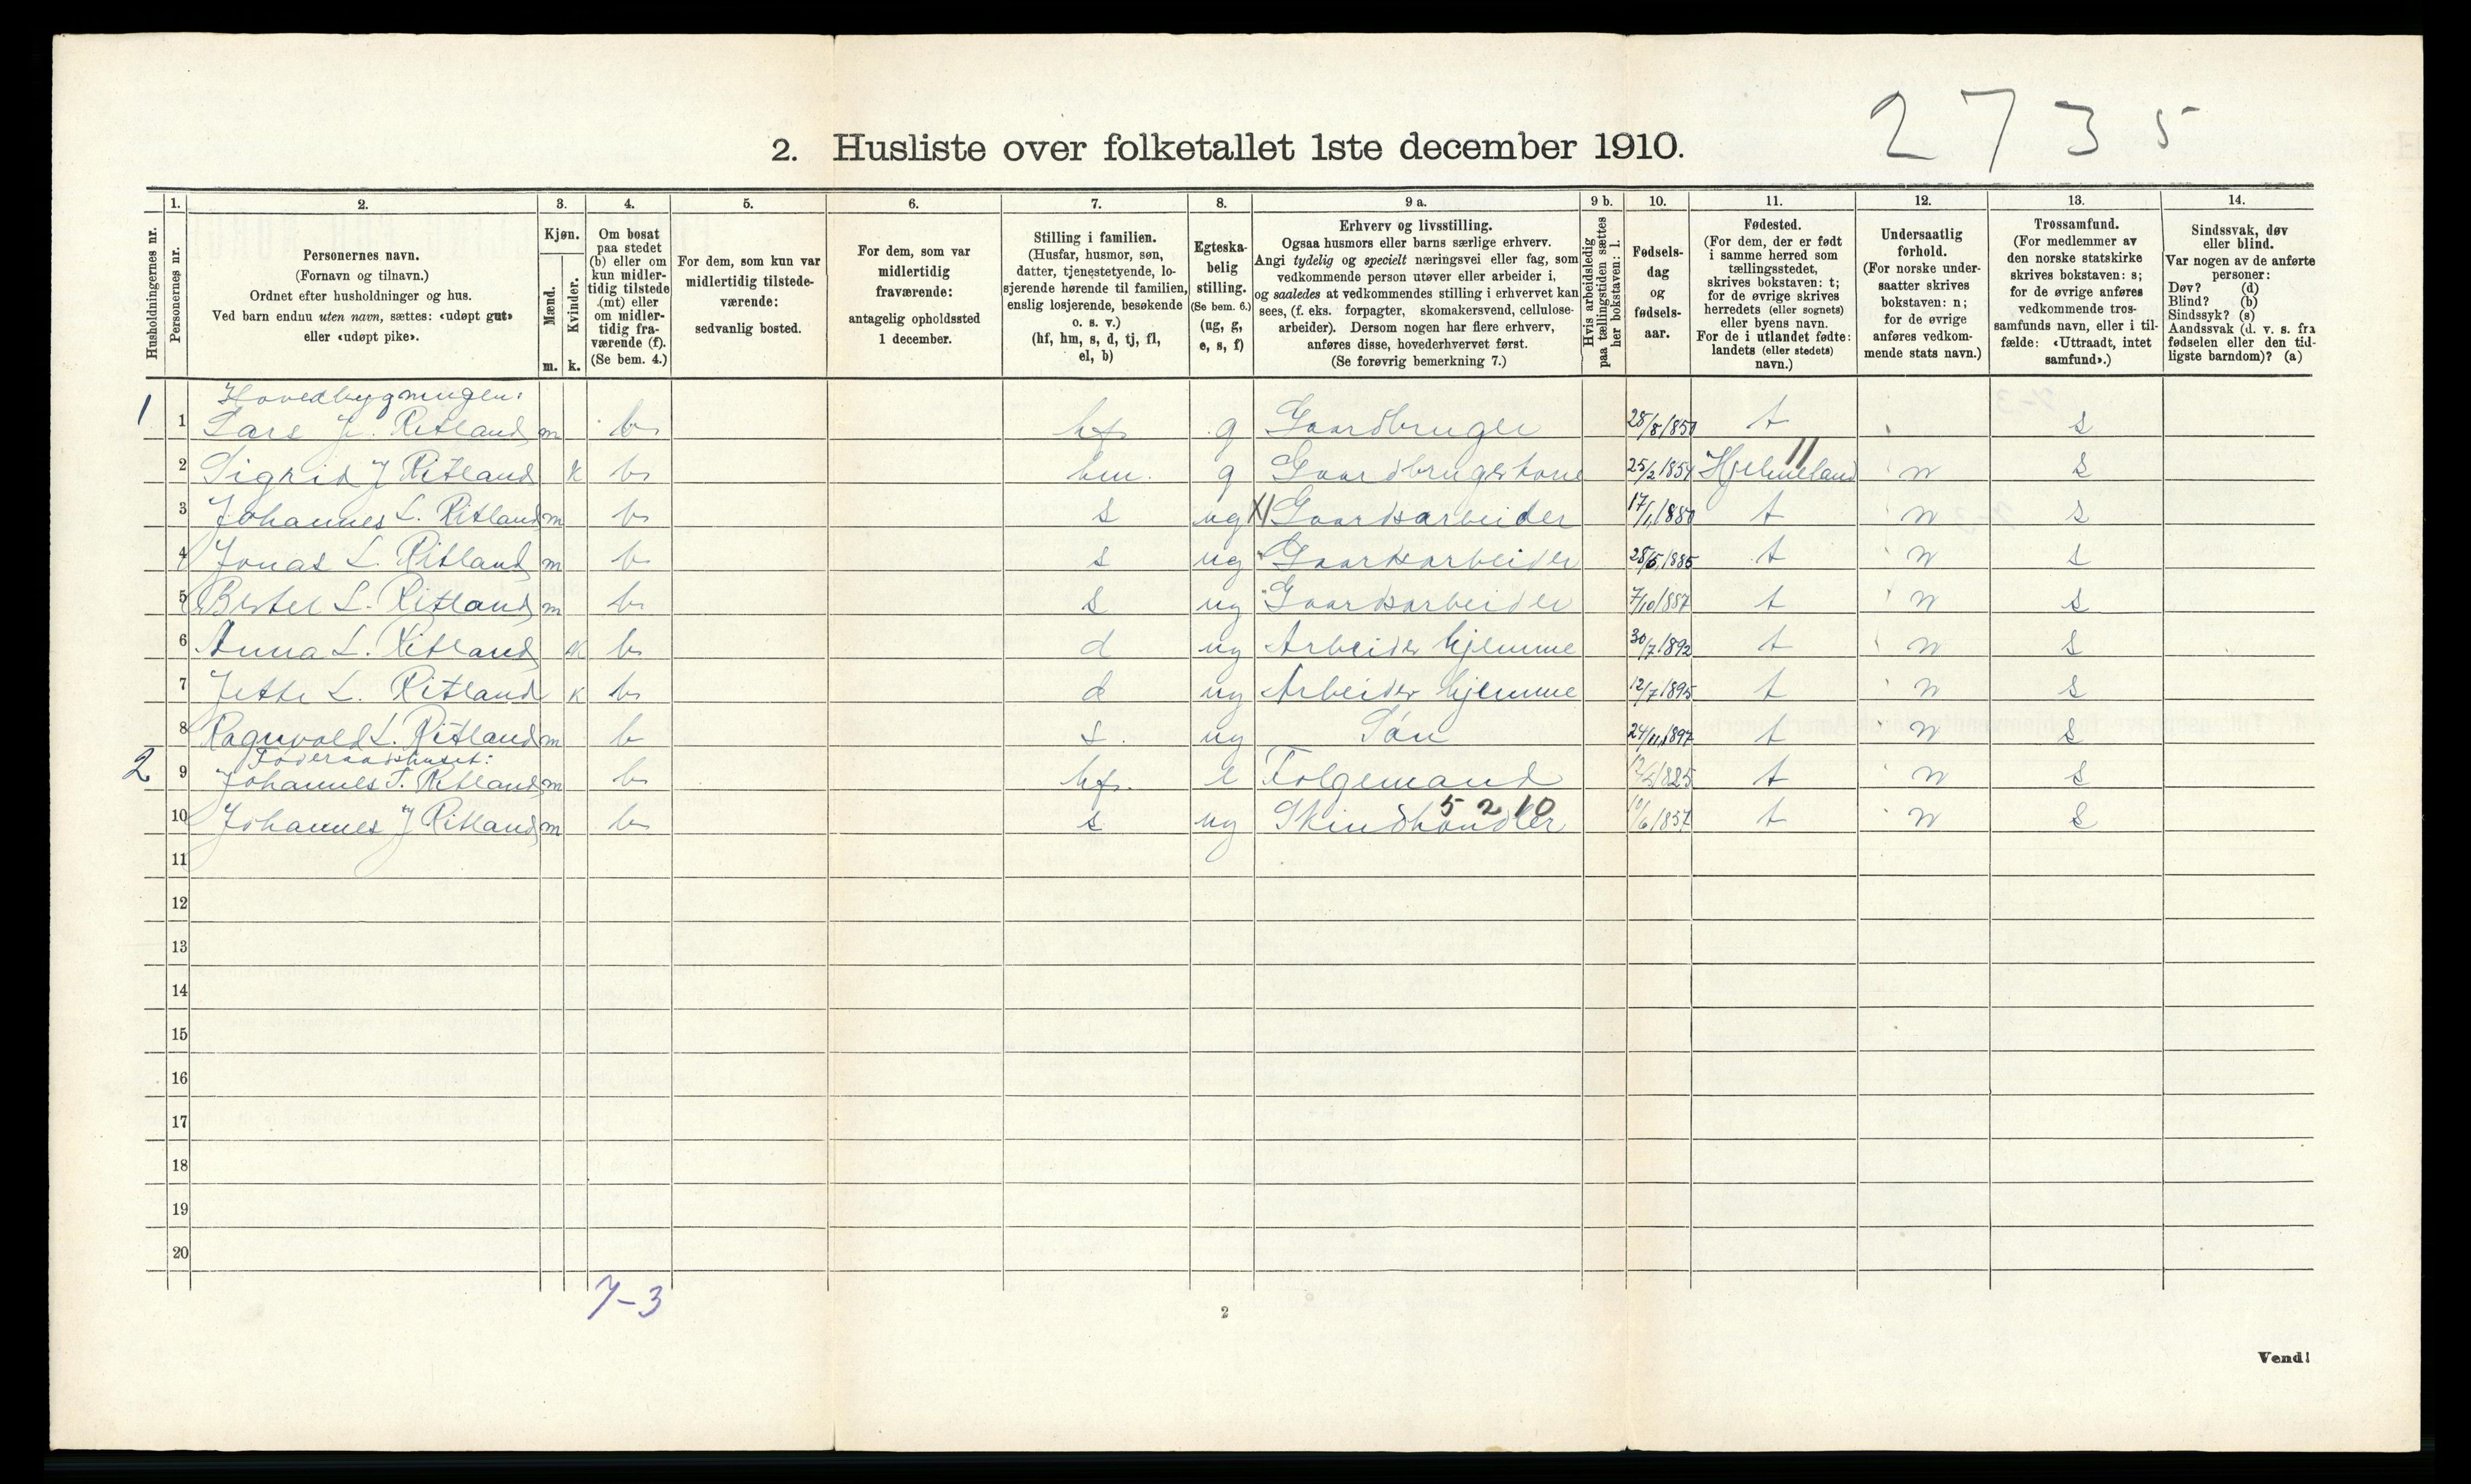 2735
2. Husliste over folketallet 1ste december 1910.
Husholdningernes nr.
1. Personernes nr.
2. Personernes navn.
(Fornavn og tilnavn.)
Ordnet efter husholdninger og hus.
Ved barn endnu uten navn, sættes: «udøpt gut»
eller «udøpt pike».
3. Kjøn.
Mænd. m.
Kvinder. k.
4. Om bosat
paa stedet
(b) eller om
kun midler-
tidig tilstede
(mt) eller
om midler-
tidig fra-
værende (f).
(Se bem. 4.)
5. For dem, som kun var
midlertidig tilstede-
værende:
sedvanlig bosted.
6. For dem, som var
midlertidig
fraværende:
antagelig opholdssted
1 december.
7. Stilling i familien.
(Husfar, husmor, søn,
datter, tjenestetyende, lo-
sjerende hørende til familien,
enslig losjerende, besøkende
o. s. v.)
(hf, hm, s, d, tj, fl,
el, b)
8. Egteska-
belig
stilling.
(Se bem. 6.)
(ug, g,
e, s, f)
9 a. Erhverv og livsstilling.
Ogsaa husmors eller barns særlige erhverv.
Angi tydelig og specielt næringsvei eller fag, som
vedkommende person utøver eller arbeider i,
og saaledes at vedkommendes stilling i erhvervet kan
sees, (f. eks. forpagter, skomakersvend, cellulose-
arbeider). Dersom nogen har flere erhverv,
anføres disse, hovederhvervet først.
(Se forøvrig bemerkning 7.)
9 b. Hvis arbeidsledig
paa tællingstiden sættes
her bokstaven: l.
10. Fødsels-
dag
og
fødsels-
aar.
11. Fødested.
(For dem, der er født
i samme herred som
tællingsstedet,
skrives bokstaven: t;
for de øvrige skrives
herredets (eller sognets)
eller byens navn.
For de i utlandet fødte:
landets (eller stedets)
navn.)
12. Undersaatlig
forhold.
(For norske under-
saatter skrives
bokstaven: n;
for de øvrige
anføres vedkom-
mende stats navn.)
13. Trossamfund.
(For medlemmer av
den norske statskirke
skrives bokstaven: s;
for de øvrige anføres
vedkommende tros-
samfunds navn, eller i til-
fælde: «Uttraadt, intet
samfund».)
14. Sindssvak, døv
eller blind.
Var nogen av de anførte
personer:
Døv? (d)
Blind? (b)
Sindssyk? (s)
Aandssvak (d. v. s. fra
fødselen eller den tid-
ligste barndom)? (a)
Hovedbygningen:
1 1 Lars J. Ritland m b hf g Gaardbruger 28/8 1850 t s
11
2 Sigrid J Ritland k b hm. g Gaardbrugerkone 25/2 1854 Hjelmeland n s
3 Johannes L. Ritland m b s ug X Gaardsarbeider 17/1 1880 t n s
4 Jonas L. Ritland m b s ug Gaardsarbeider 28/5 1885 t n s
5 Bertel L. Ritland m b s ug Gaardsarbeider 7/10 1887 t n s
6 Anna L. Ritland k b d ug Arbeider hjemme 30/7 1892 t n s
7 Jette L. Ritland k b d ug Arbeider hjemme 12/7 1895 t n s
8 Ragnvald L. Ritland m b s. ug Søn 24/11 1897 t n s
Føderaadshuset:
2 9 Johannes T. Ritland m b hf. e Folgemand 1825 t n s
5 2 10
10 Johannes J Ritland m b s ug Skindhandler 10/6 1857 t n s
11
12
13
14
15
16
17
18
19
20
7-3
2
Vend!